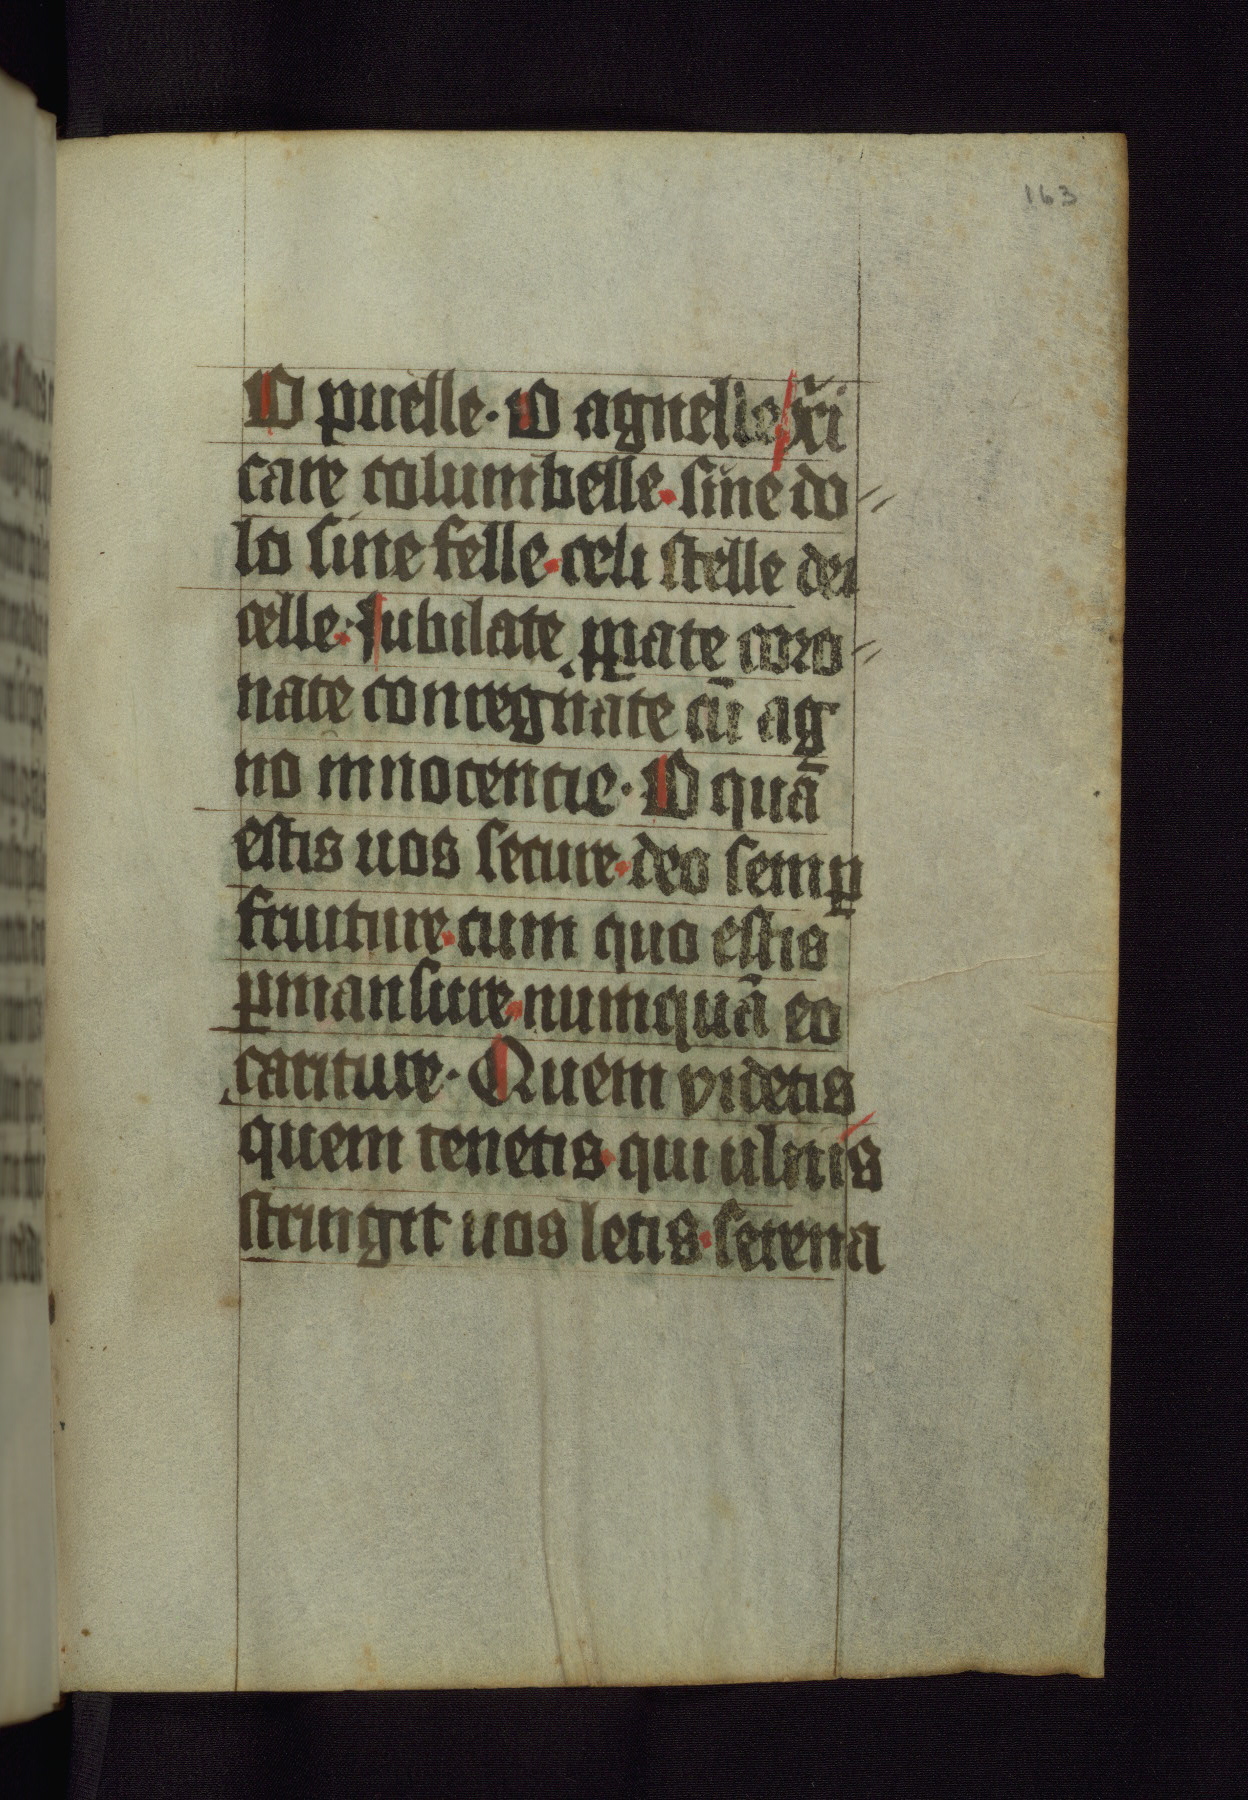 163
O puelle. O agnelle xp̄i
care columbelle. sine do
lo sine felle. celi stelle dei
celle. Jubilate ꝓpate coro
nate conregnate cū ag
no innocencie. O quā
estis uos secure. deo semꝑ
fruiture. cum quo estis
ꝑmansure. numquā eo
cariture. Quem videtis
quem tenetis. qui ulnis
stringit uos letis. serena